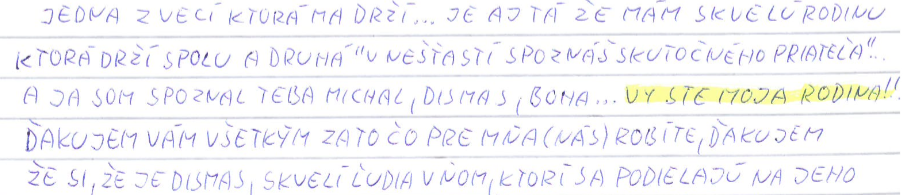 JEDNA Z VECÍ KTORÁ MA DRŽÍ... JE AJ TÁ ŽE MÁM SKVELÚ RODINU
KTORÁ DRŽÍ SPOLU A DRUHÁ "V NEŠŤASTÍ SPOZNÁŠ SKUTOČNÉHO PRIATEĽA"...
A JA SOM SPOZNAL TEBA MICHAL, DISMAS, BOHA... VY STE MOJA RODINA!!
ĎAKUJEM VÁM VŠETKÝM ZA TO ČO PRE MŇA (NÁS) ROBÍTE, ĎAKUJEM
ŽE SI, ŽE JE DISMAS, SKVELÍ ĽUDIA V ŇOM, KTORÍ SA PODIELAJÚ NA JEHO